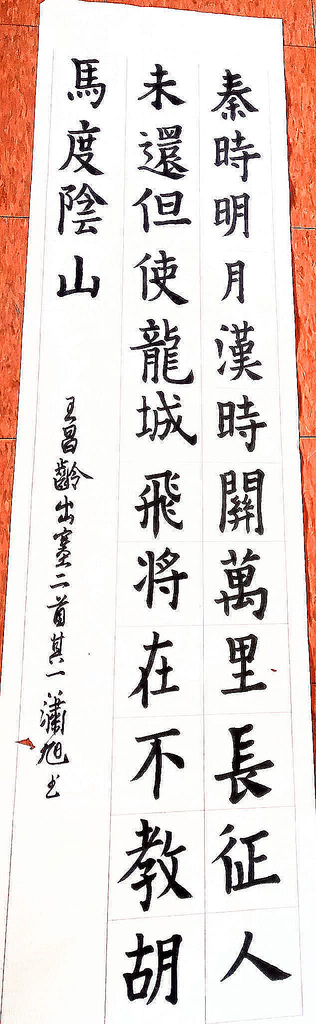 秦時明月漢時關萬里長征人
未還但使龍城飛将在不教胡
馬度陰山
王昌齡出塞二首其一瀟旭书